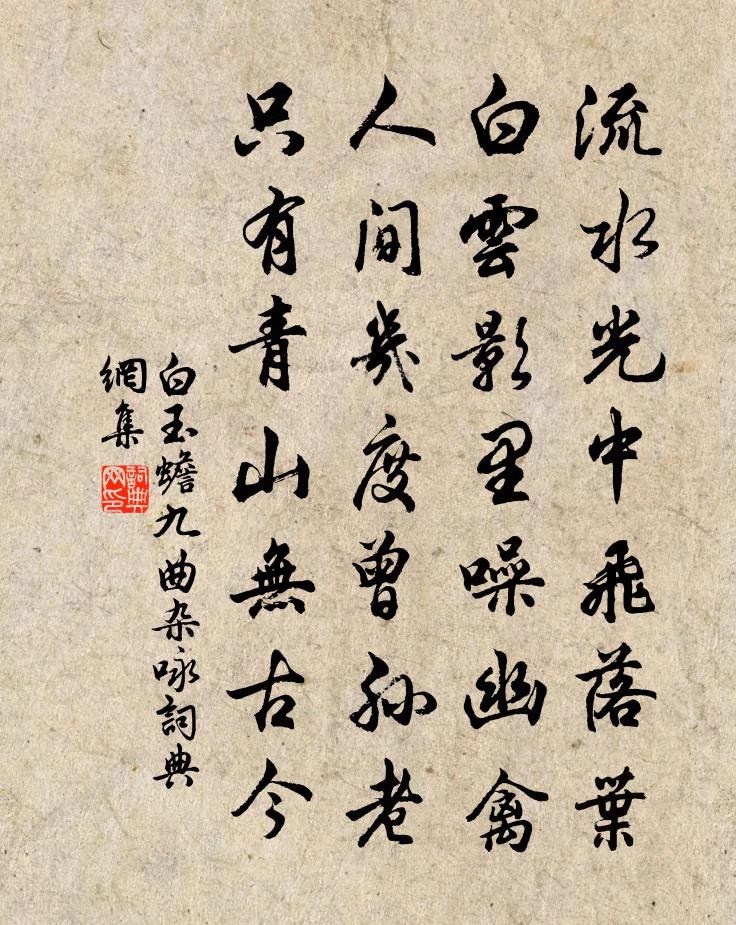 流水光中飛落葉
白雲影里噪幽禽
人間幾度曾孙老
只有青山無古今
白玉蟾九曲杂咏詞典
網集
詞典
网印